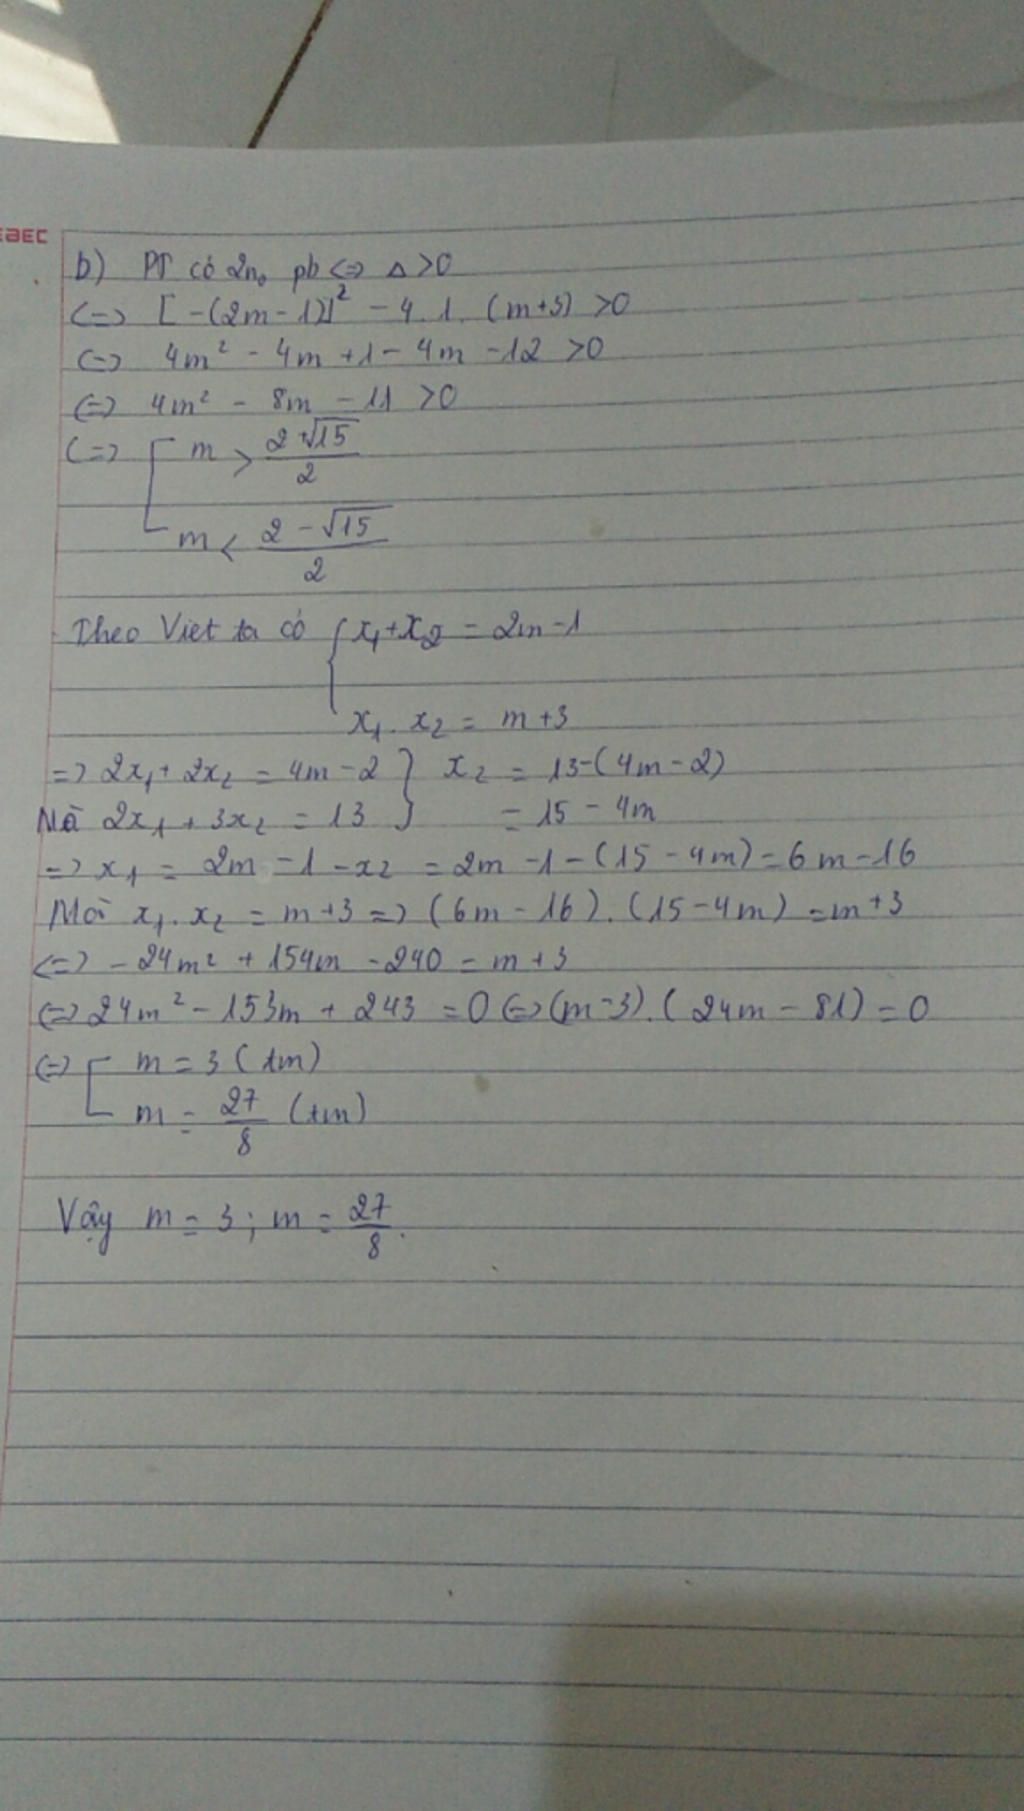 EBEC
b) PT có 2n₀ pb <=> Δ >0
<=> [-(2m-1)]² - 4.1.(m+3) >0
<=> 4m² - 4m +1 - 4m -12 >0
<=> 4m² - 8m - 11 >0
<=> [ m > (2+√15)/2
m < (2-√15)/2
Theo Viet ta có { x₁+x₂ = 2m-1
x₁.x₂ = m+3
=> 2x₁+2x₂ = 4m-2 } x₂ = 13-(4m-2)
Mà 2x₁+3x₂ = 13 } = 15-4m
=> x₁ = 2m -1 -x₂ = 2m -1-(15-4m) = 6m-16
Mà x₁.x₂ = m+3 => (6m-16).(15-4m) = m+3
<=> -24m² + 154m -240 = m+3
<=> 24m² - 153m + 243 = 0 <=> (m-3).(24m-81) = 0
<=> [ m = 3 (tm)
m = 27/8 (tm)
Vậy m = 3; m = 27/8.